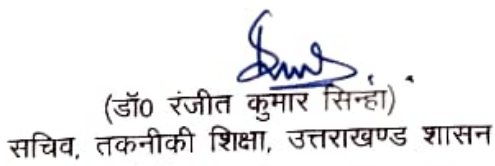 (डॉ0 रंजीत कुमार सिन्हा)
सचिव, तकनीकी शिक्षा, उत्तराखण्ड शासन